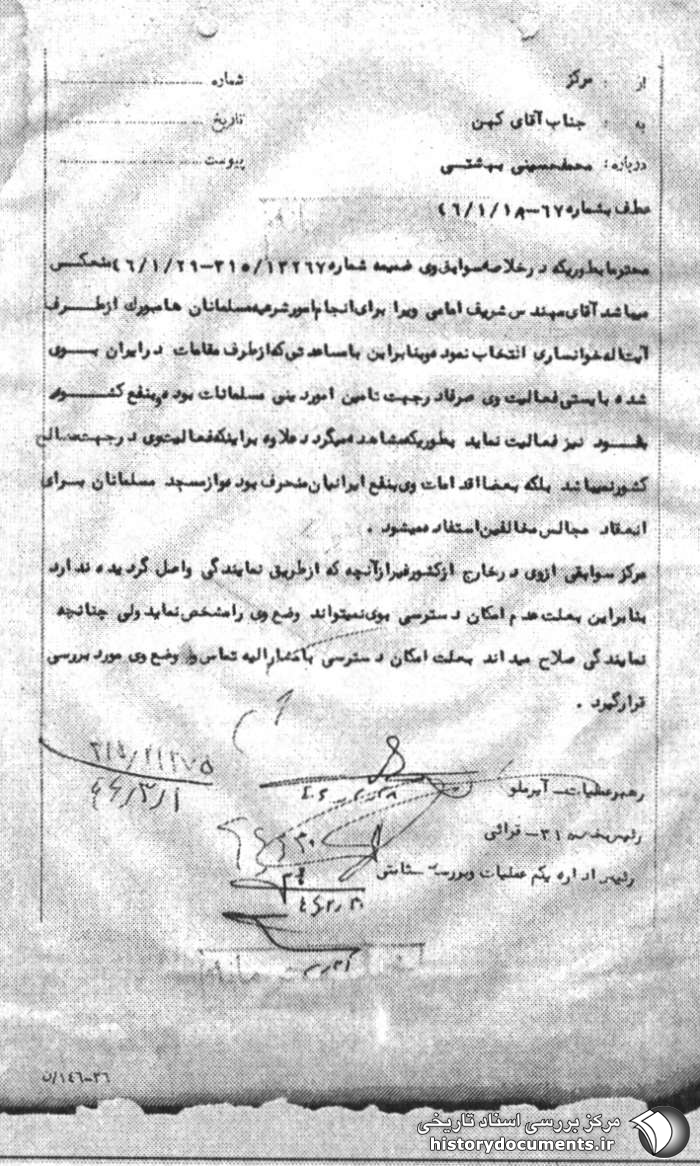 از : مرکز
شماره
به : جناب آقای کهن
تاریخ
درباره : محمدحسینی بهشتی
پیوست
عطف بشماره ۶۷-۴۶/۱/۱۸
محترما بطوریکه درخلاصه سوابق وی ضمیمه شماره ۳۱۵/۱۳۲۶۷-۴۶/۱/۲۹ منعکس
میباشد آقای مهندس شریف امامی ویرا برای انجام امور شرعیه مسلمانان هامبورک از طرف
آیت اله خوانساری انتخاب نموده وبنابراین با مساعدتی که از طرف مقامات درایران بوی
شده بایستی فعالیت وی صرفاد رجهت تامین اموردینی مسلمانات بوده وبنفع کشور
نیز فعالیت نماید بطوریکه مشاهده میگردد علاوه براینکه فعالیت وی درجهت مصالح
کشورنمیباشد بلکه بعضا اقدامات وی بنفع ایرانیان منحرف بوده واز مسجد مسلمانان برای
انعقاد مجالس مخالفین استفاده میشود .
مرکز سوابقی ازوی درخارج ازکشور غیرازآنچه که ازطریق نمایندگی واصل گردیده ندارد
بنابراین بعلت عدم امکان دسترسی بوی نمیتواند وضع وی رامشخص نماید ولی چنانچه
نمایندگی صلاح میداند بعلت امکان دسترسی بامشارالیه تماس و وضع وی مورد بررسی
قرارگیرد .
۳۱۵/۲۱۲۷۵
۴۶/۳/۱
رهبرعملیات - آیرملو
رئیس بخش ۳۱۵ - قرائی
رئیس اداره یکم عملیات وبررسی - ثابتی
۳۶-۱۴۶/ن
مرکز بررسی اسناد تاریخی
historydocuments.ir